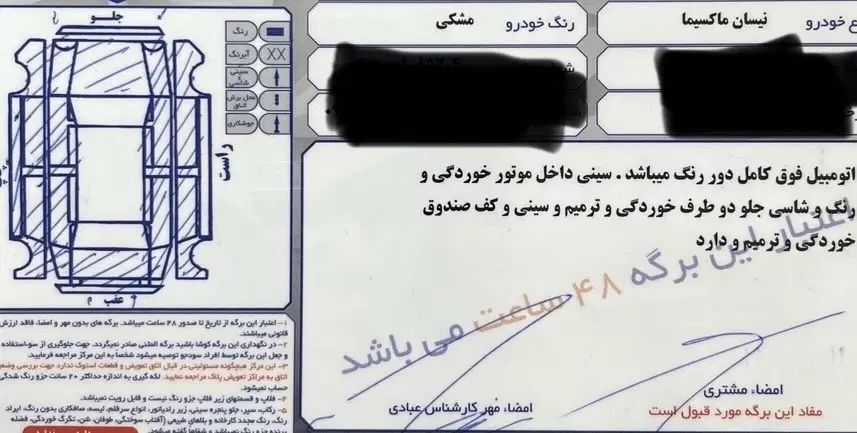 نوع خودرو نیسان ماکسیما
رنگ خودرو مشکی
جلو
رنگ
XX آبرنگ
سینی و شاسی
محل برش اتاق
جوشکاری
راست
عقب
اتومبیل فوق کامل دور رنگ میباشد . سینی داخل موتور خوردگی و
رنگ و شاسی جلو دو طرف خوردگی و ترمیم و سینی و کف صندوق
خوردگی و ترمیم و دارد
اعتبار این برگه ۴۸ ساعت می باشد
امضاء مشتری
مفاد این برگه مورد قبول است
امضاء مهر کارشناس عبادی
۱- اعتبار این برگه از تاریخ تا صدور ۴۸ ساعت میباشد. برگه های بدون مهر و امضاء، فاقد ارزش
قانونی میباشند.
۲- در نگهداری این برگه کوشا باشید برگه المثنی صادر نمیگردد. جهت جلوگیری از سوءاستفاده
و جعل این برگه توسط افراد سودجو توصیه میشود شخصا به این مرکز مراجعه فرمایید.
۳- این مرکز هیچگونه مسئولیتی در قبال اتاق تعویض و قطعات استوک ندارد جهت بررسی وضع
اتاق به مراکز تعویض پلاک مراجعه نمایید. لکه گیری به اندازه حداکثر ۲۰ سانت جزو رنگ شدگی
حساب نمیشود.
۴- قلاب و قسمتهای زیر قلاب جزو رنگ نیست و قابل رویت نمیباشد.
۵- رکاب، سپر، جلو پنجره سینی، زیر رادیاتور، انواع سرقلم، لیسه، صافکاری بدون رنگ، ایراد
رنگ، رنگ مجدد کارخانه و بلاهای طبیعی (آفتاب سوختگی، طوفان، شن، تگرگ خوردگی، فضله